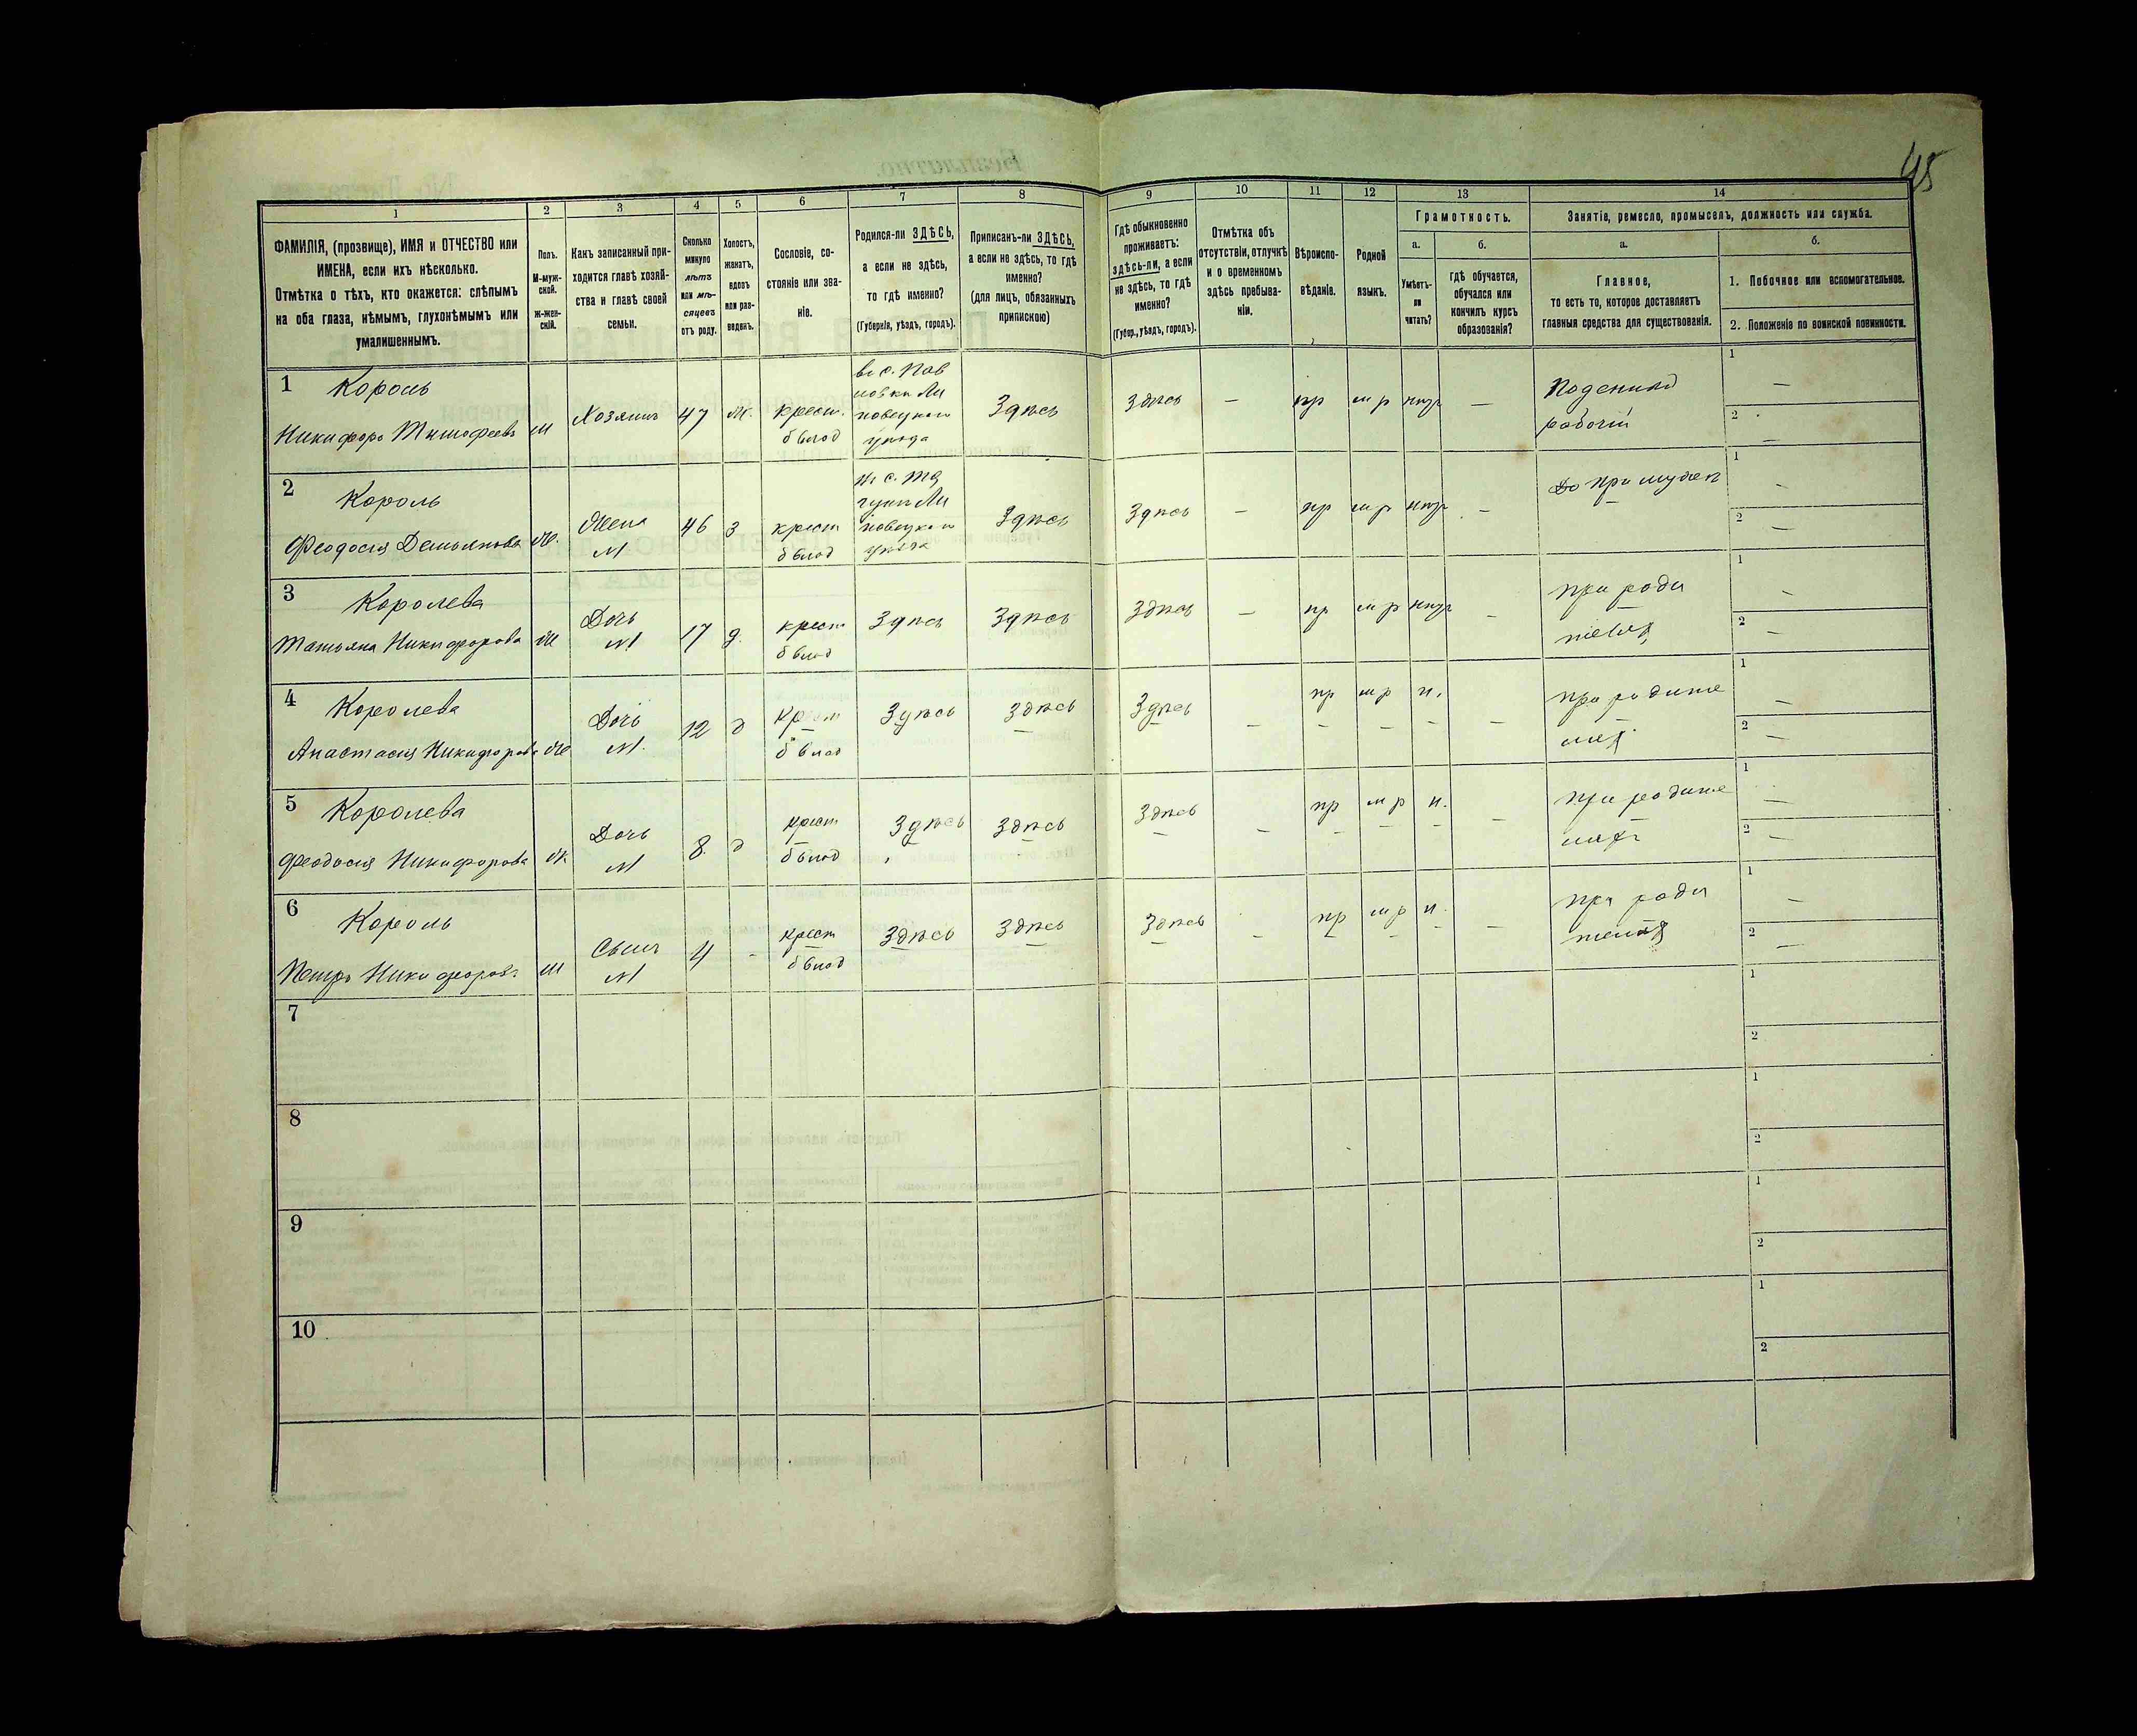 45
1
2
3
4
5
6
7
8
9
10
11
12
13
14
ФАМИЛІЯ, (прозвище), ИМЯ и ОТЧЕСТВО или
ИМЕНА, если ихъ нѣсколько.
Отмѣтка о тѣхъ, кто окажется: слѣпымъ
на оба глаза, нѣмымъ, глухонѣмымъ или
умалишеннымъ.
Полъ.
М-муж-
ской.
Ж-жен-
скій.
Какъ записанный при-
ходится главѣ хозяй-
ства и главѣ своей
семьи.
Сколько
минуло
лѣтъ
или мѣ-
сяцевъ
отъ роду.
Холостъ,
женатъ,
вдовъ
или раз-
веденъ.
Сословіе, со-
стояніе или зва-
ніе.
Родился-ли ЗДѢСЬ,
а если не здѣсь,
то гдѣ именно?
(Губернія, уѣздъ, городъ).
Приписанъ-ли ЗДѢСЬ,
а если не здѣсь, то гдѣ
именно?
(для лицъ, обязанныхъ
припискою)
Гдѣ обыкновенно
проживаетъ:
здѣсь-ли, а если
не здѣсь, то гдѣ
именно?
(Губер., уѣздъ, городъ).
Отмѣтка объ
отсутствіи, отлучкѣ
и о временномъ
здѣсь пребыва-
ніи.
Вѣроиспо-
вѣданіе.
Родной
языкъ.
Грамотность.
а.
Умѣетъ-
ли
читать?
б.
гдѣ обучается,
обучался или
кончилъ курсъ
образованія?
Занятіе, ремесло, промыселъ, должность или служба.
а.
Главное,
то есть то, которое доставляетъ
главныя средства для существованія.
б.
1. Побочное или вспомогательное.
2. Положеніе по воинской повинности.
1 Король
Никифоръ Тимофеевъ м Хозяинъ 47 ж. крест. б влад
уѣзда
Здѣсь Здѣсь — пр м р нигр —
Поденный
рабочій
1 —
2 —
2 Король
Феодосія Демьянова ж. Жена
М 46 з крест
б влад
уѣзда
Здѣсь Здѣсь — пр м р нигр —
При мужѣ
1 —
2 —
3 Королева
Татьяна Никифорова ж Дочь
М 17 д. крест
б влад Здѣсь Здѣсь Здѣсь — пр м р нигр —
при роди
теляхъ
1 —
2 —
4 Королева
Анастасія Никифорова ж Дочь
М. 12 д крест
б влад Здѣсь Здѣсь Здѣсь — пр м р н. —
при родите
ляхъ
1 —
2 —
5 Королева
Феодосія Никифорова ж Дочь
М 8. д крест
б влад Здѣсь Здѣсь Здѣсь — пр м р н. —
при родите
ляхъ
1 —
2 —
6 Король
Петръ Никифоровъ м Сынъ
М 4 - крест
б влад Здѣсь Здѣсь Здѣсь — пр м р н. —
при роди
теляхъ
1 —
2 —
7
1
2
8
1
2
9
1
2
10
1
2